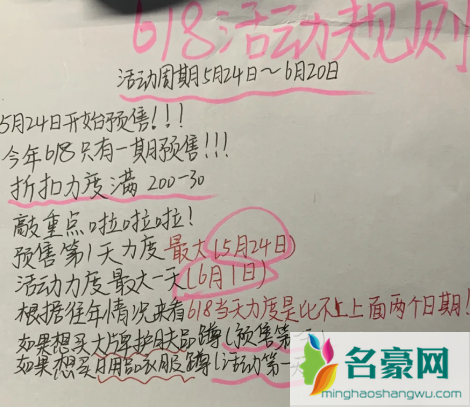 618活动规则
活动周期5月24日~6月20日
5月24日开始预售!!!
今年618只有一期预售!!!
折扣力度满200-30
敲重点啦啦啦!
预售第1天力度最大(5月24日)
活动力度最大一天(6月1日)
根据往年情况来看618当天力度是比不上上面两个日期!
如果想买大牌护肤品蹲(预售第一
如果想买日用品衣服蹲(活动第一天
名豪网
minghaoshangwu.com